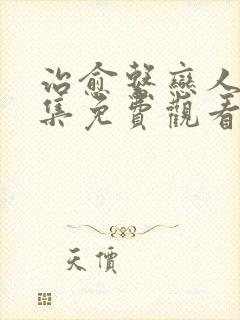 治愈系戀人
集免費觀看
天價